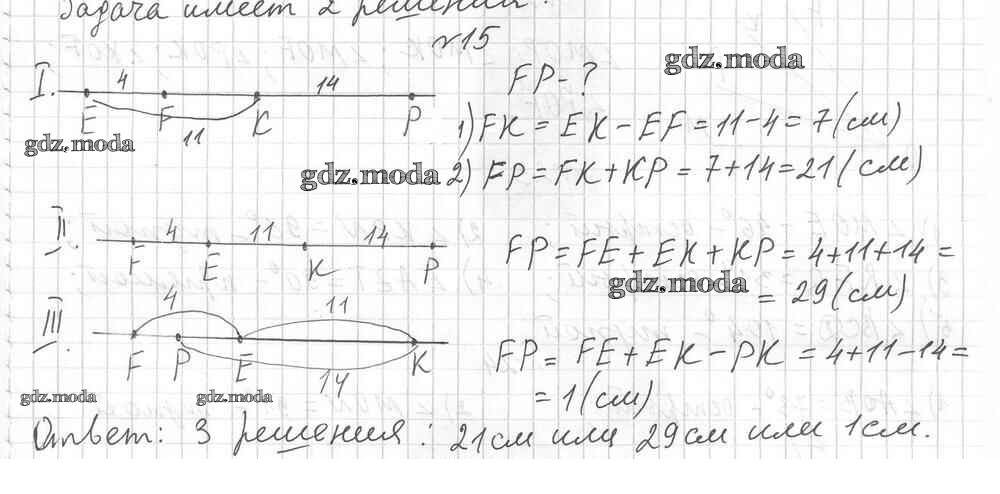 Задача имеет 2 решения.
№15
I.
4
14
E F K P
11
FP-?
1) FK = EK - EF = 11 - 4 = 7 (см)
2) FP = FK + KP = 7 + 14 = 21 (см)
gdz.moda
gdz.moda
gdz.moda
II.
4 11 14
F E K P
FP = FE + EK + KP = 4 + 11 + 14 =
= 29 (см)
gdz.moda
III.
4 11
F P E K
14
FP = FE + EK - PK = 4 + 11 - 14 =
= 1 (см)
gdz.moda
gdz.moda
Ответ: 3 решения: 21 см или 29 см или 1 см.